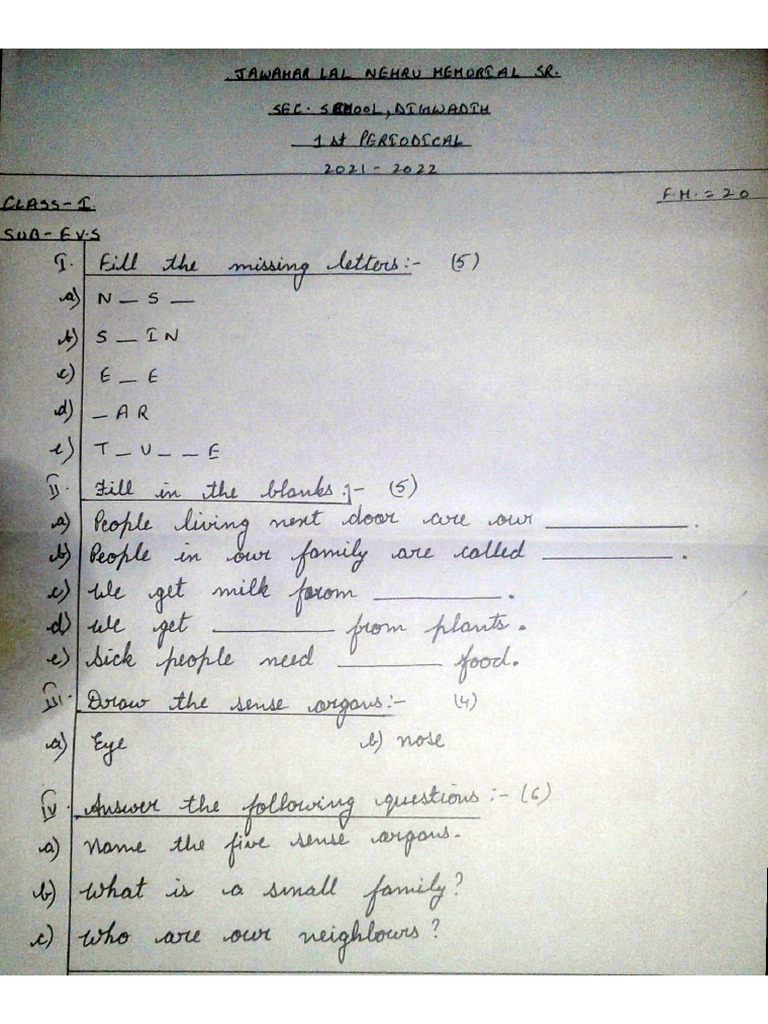 JAWAHAR LAL NEHRU MEMORIAL SR.
SEC. SCHOOL, DIMWADIH
1st PERIODICAL
2021-2022
F.M. = 20
CLASS-I.
SUB-EVS
I. Fill the missing letters:- (5)
a) N _ S _
b) S _ IN
c) E _ E
d) _ AR
e) T _ U _ _ E
II. Fill in the blanks:- (5)
a) People living next door are our ________.
b) People in our family are called ________.
c) We get milk from ________.
d) We get ________ from plants.
e) Sick people need ________ food.
III. Draw the sense organs:- (4)
a) Eye b) nose
IV. Answer the following questions:- (6)
a) Name the five sense organs.
b) What is a small family?
c) Who are our neighbours?